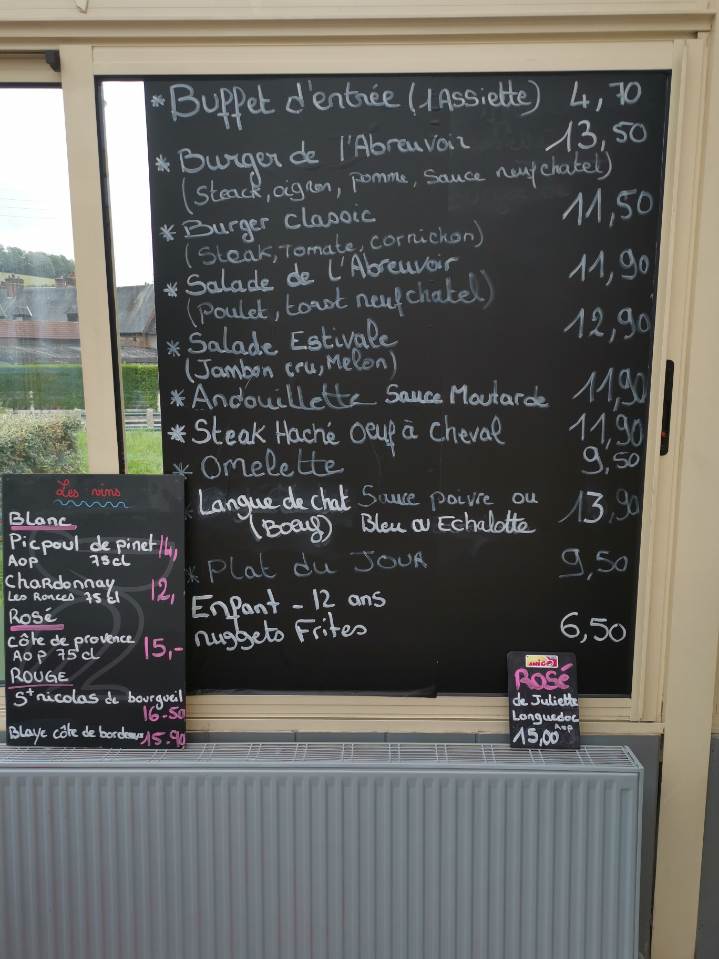 * Buffet d'entrée (1 Assiette) 4,70
* Burger de l'Abreuvoir 13,50
(Steack, oignon, pomme, Sauce neufchatel)
* Burger classic 11,50
(Steak, Tomate, cornichon)
* Salade de L'Abreuvoir 11,90
(Poulet, toast neufchatel)
* Salade Estivale 12,90
(Jambon cru, Melon)
* Andouillette Sauce Moutarde 11,90
* Steak Haché Oeuf à cheval 11,90
* Omelette 9,50
Langue de chat Sauce poivre ou 13,90
(Boeuf) Bleu ou Echalotte
* Plat du JOUR 9,50
Enfant - 12 ans
nuggets Frites 6,50
Les vins
Blanc
Picpoul de pinet 14,
AOP 75cl
Chardonnay 12,
Les Ronces 75cl
Rosé
Côte de provence 15,-
AOP 75cl
ROUGE
St nicolas de bourgueil
16-50
Blaye côte de bordeaux 15-90
ROSÉ
de Juliette
Languedoc
AOP
15,00